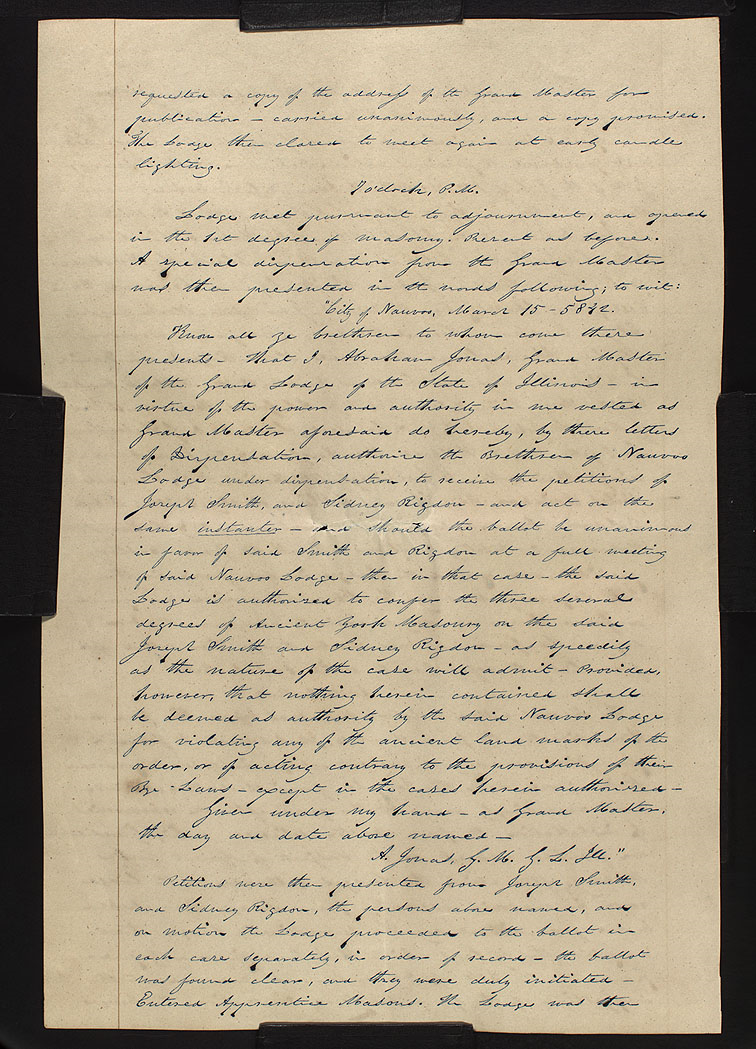 requested a copy of the address of the Grand Master for
publication – carried unanimously, and a copy promised.
The Lodge then closed to meet again at early candle
lighting.
7 o'clock, P.M.
Lodge met pursuant to adjournment, and opened
in the 1st degree of masonry. Present as before.
A special dispensation from the Grand Master
was then presented in the words following; to wit:
"City of Nauvoo, March 15 – 5842.
Know all ye brethren to whom come these
presents – that I, Abraham Jonas, Grand Master
of the Grand Lodge of the State of Illinois – in
virtue of the power and authority in me vested as
Grand Master aforesaid do hereby, by these letters
of Dispensation, authorize the Brethren of Nauvoo
Lodge under dispensation, to receive the petitions of
Joseph Smith, and Sidney Rigdon – and act on the
same instanter – and should the ballot be unanimous
in favor of said Smith and Rigdon at a full meeting
of said Nauvoo Lodge – then in that case – the said
Lodge is authorized to confer the three several
degrees of Ancient York Masonry on the said
Joseph Smith and Sidney Rigdon – as speedily
as the nature of the case will admit – Provided,
however, that nothing herein contained shall
be deemed as authority by the said Nauvoo Lodge
for violating any of the ancient land marks of the
order, or of acting contrary to the provisions of their
Bye-Laws – except in the cases herein authorized –
Given under my hand – as Grand Master,
the day and date above named –
A. Jonas, G. M. G. L. Ill."
Petitions were then presented from Joseph Smith,
and Sidney Rigdon, the persons above named, and
on motion the Lodge proceeded to the ballot in
each case separately, in order of record – the ballot
was found clear, and they were duly initiated –
Entered Apprentice Masons. The Lodge was then